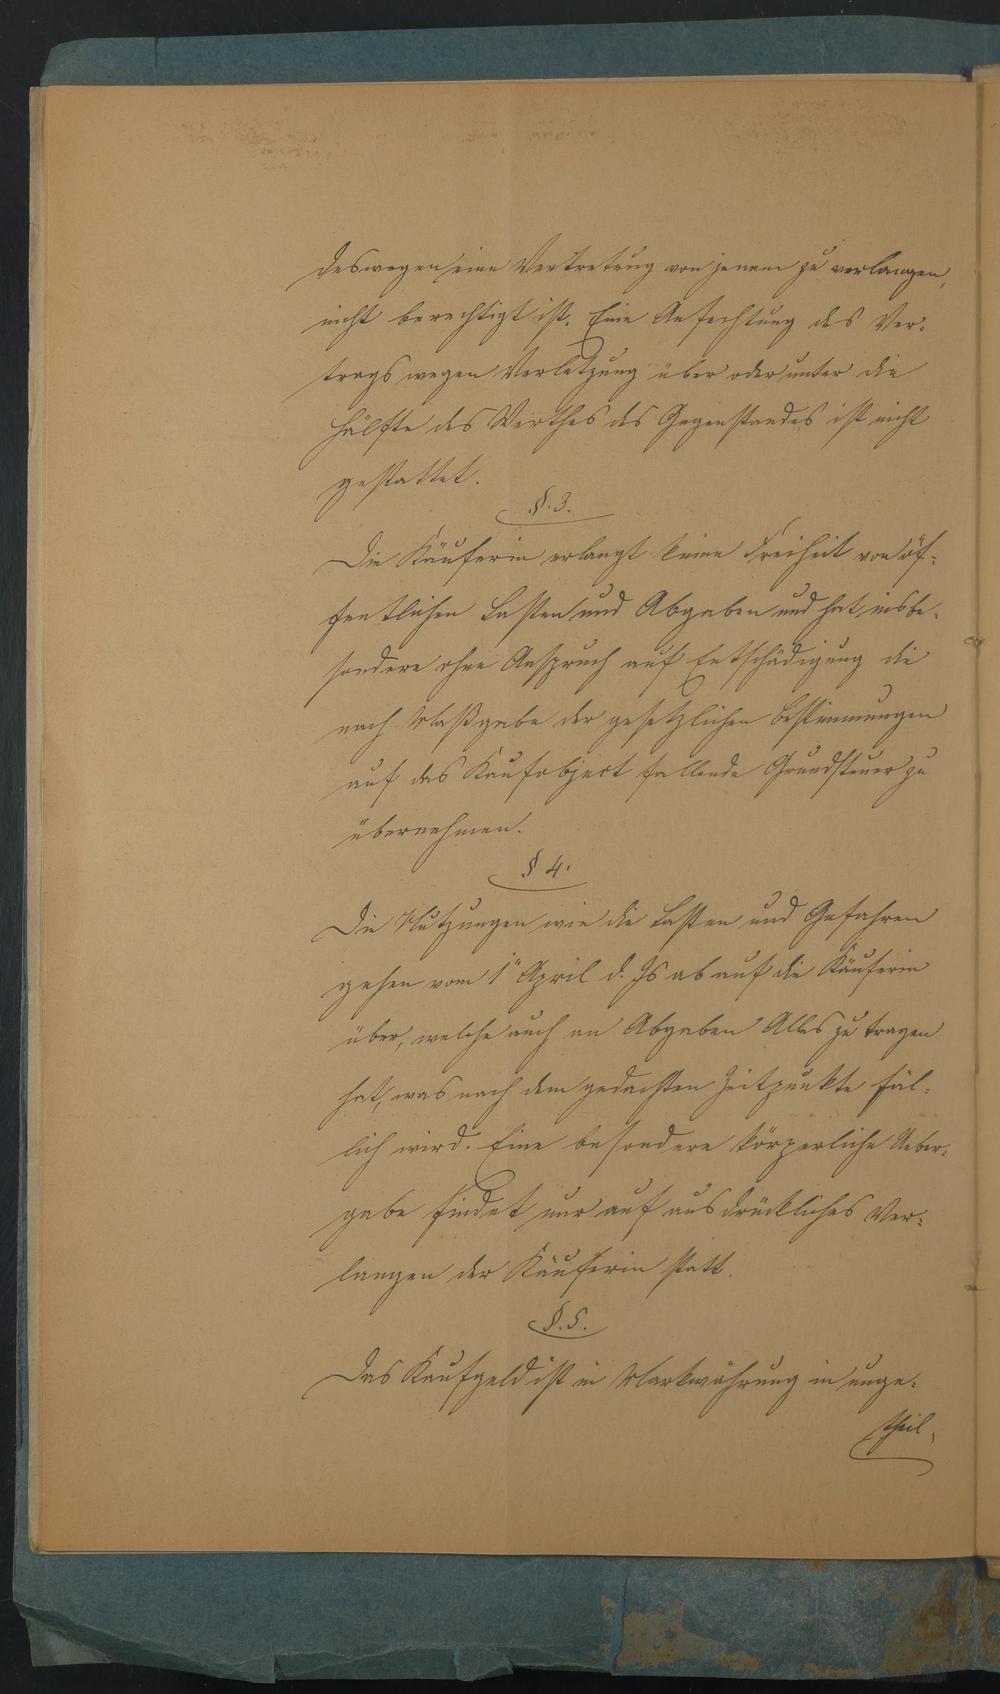 deswegen eine Vertretung von jenem zu verlangen,
nicht berechtigt ist. Eine Anfechtung des Ver-
trags wegen Verletzung über oder unter die
Hälfte des Werthes des Gegenstandes ist nicht
gestattet.
§. 3.
Die Käuferin erlangt keine Freiheit von öf-
fentlichen Lasten und Abgaben und hat insbe-
sondere ohne Anspruch auf Entschädigung die
nach Maßgabe der gesetzlichen Bestimmungen
auf das Kaufobject fallende Grundsteuer zu
übernehmen.
§ 4.
Die Nutzungen wie die Lasten und Gefahren
gehen vom 1" April d. Js ab auf die Käuferin
über, welche auch an Abgaben Alles zu tragen
hat, was nach dem gedachten Zeitpunkte fäl-
lich wird. Eine besondere körperliche Ueber-
gabe findet nur auf ausdrückliches Ver-
langen der Käuferin statt.
§. 5.
Das Kaufgeld ist in Markwährung in unge-
theil-